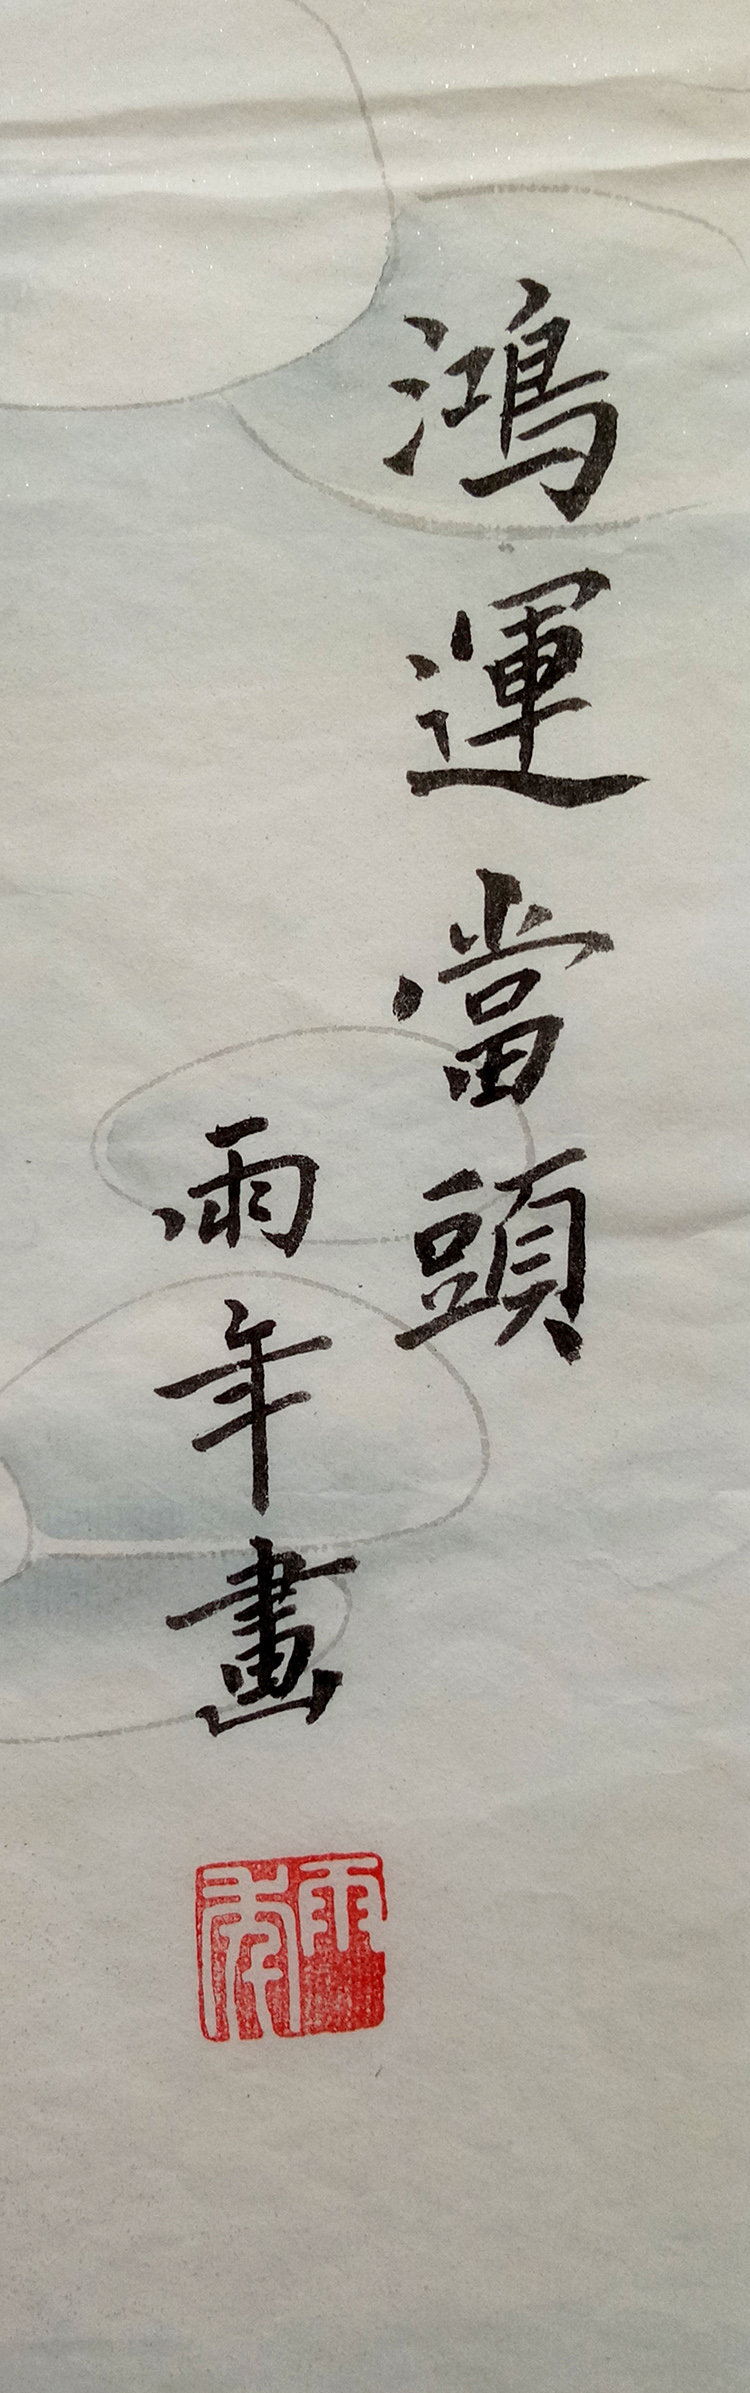 鴻運當頭
雨年畫
雨年